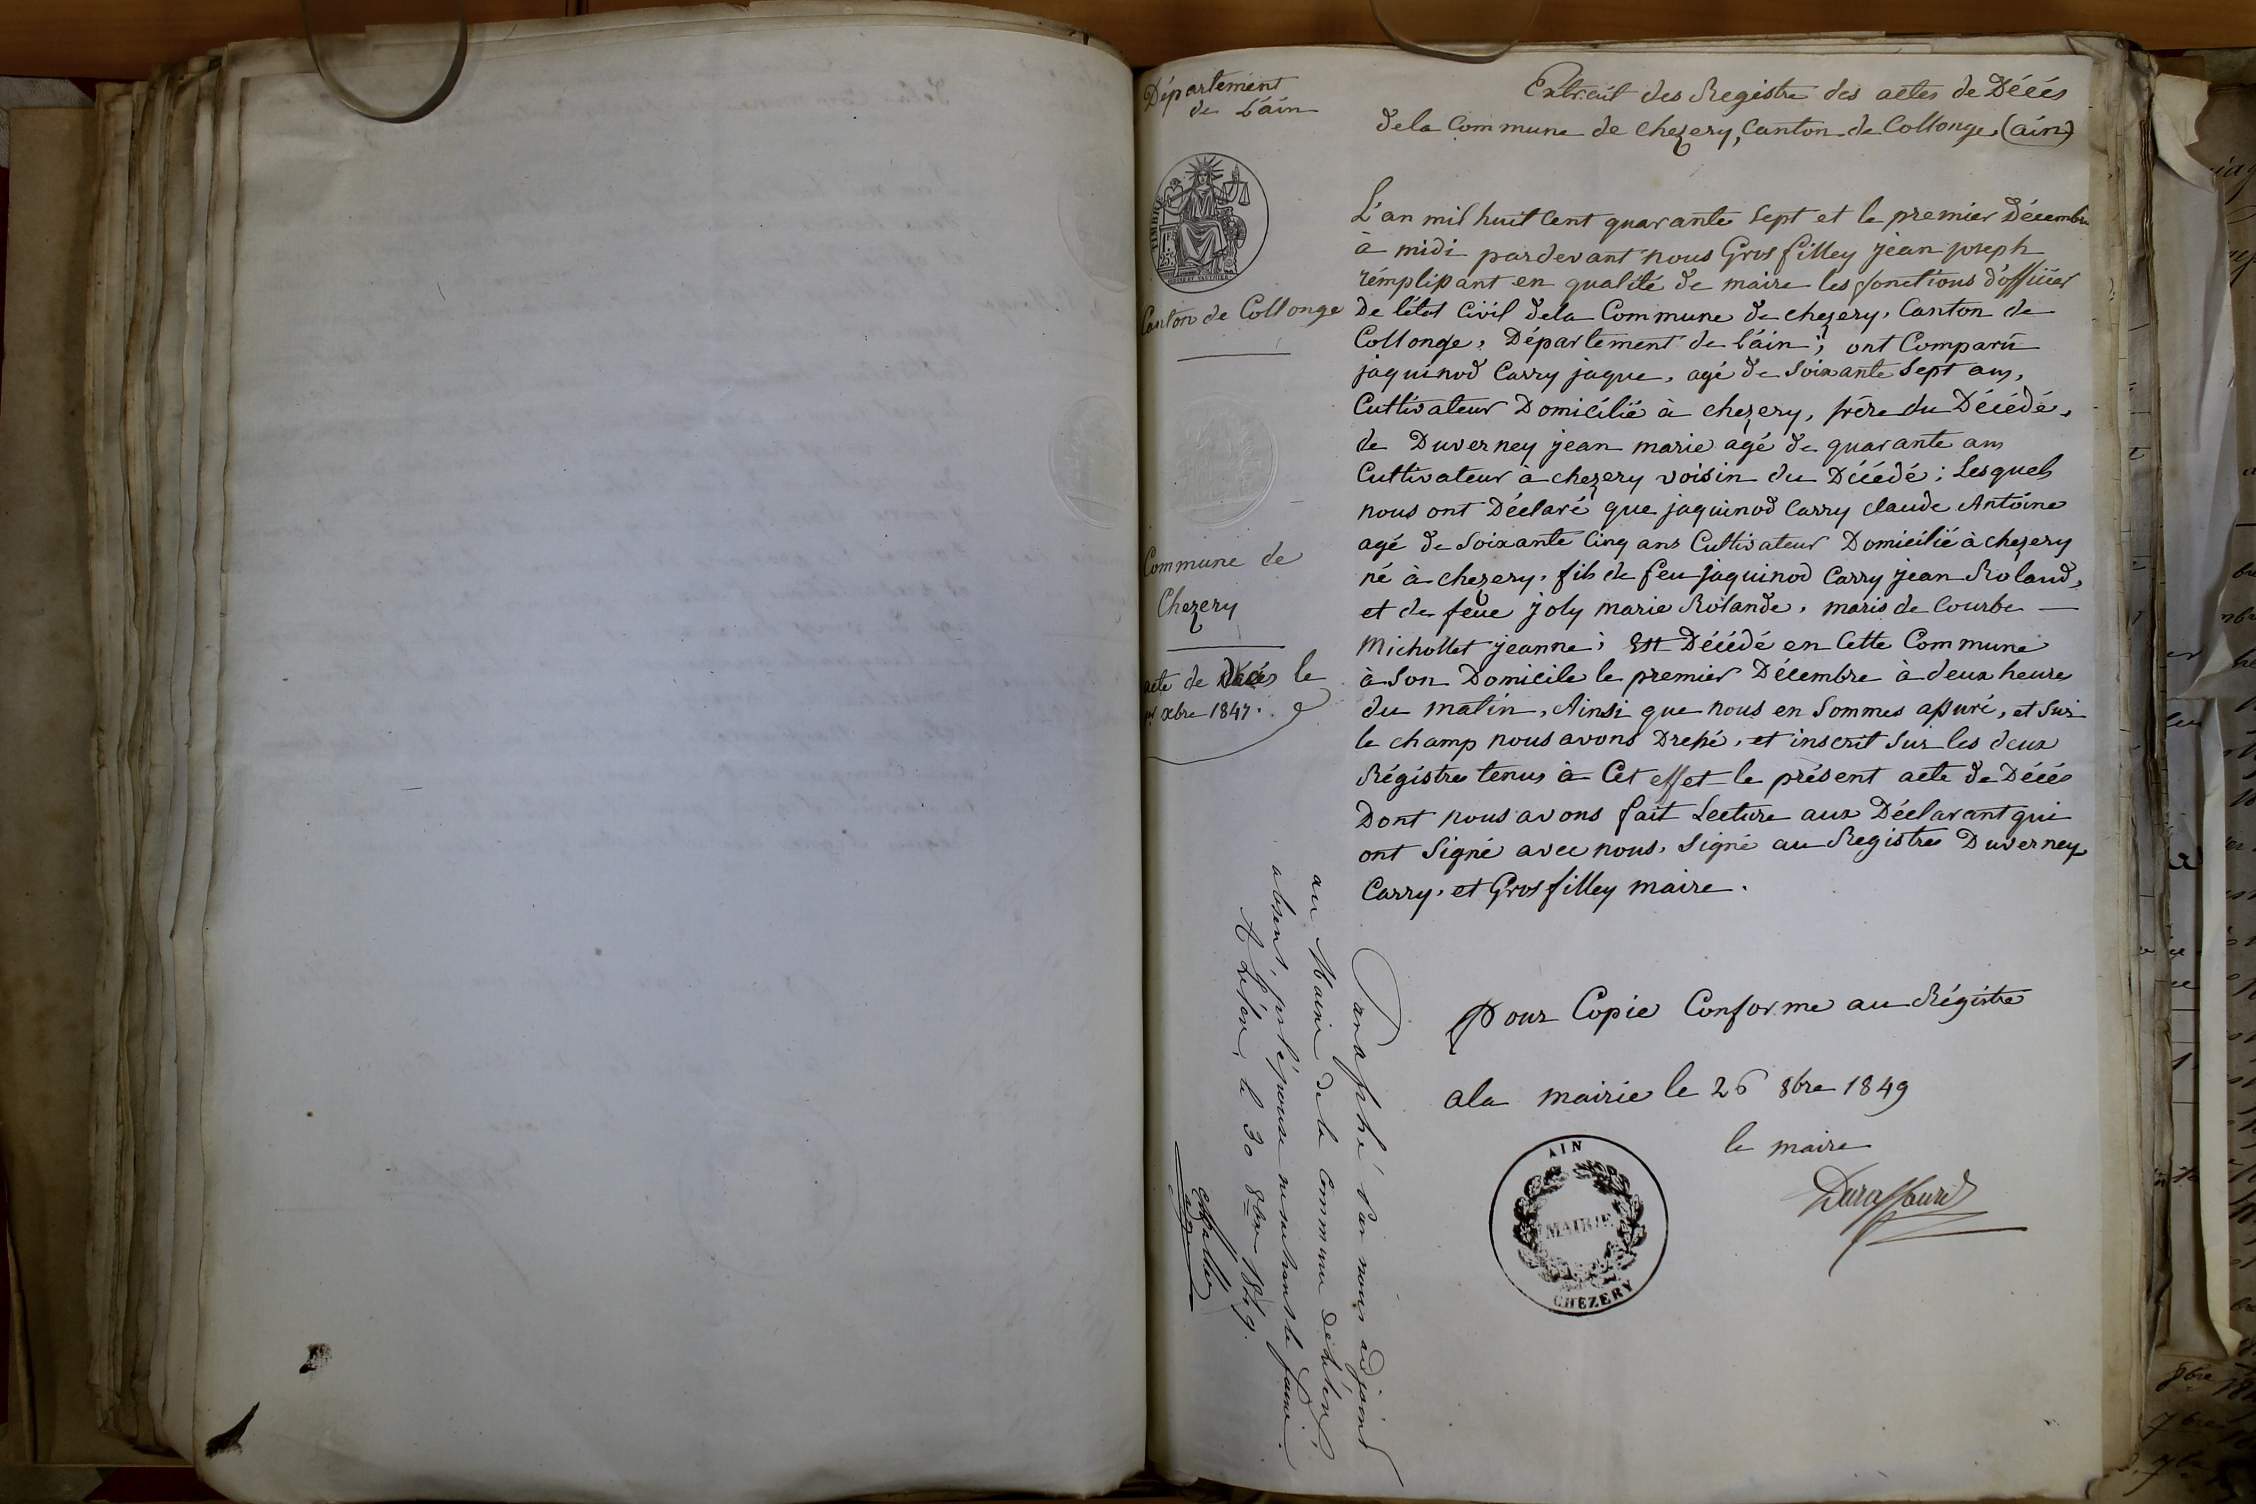 Département
de L'ain
TIMBRE
1F
25c
Canton de Collonge
Commune de
Chezery
acte de Décés le
1er xbre 1847.
Extrait des Registre des actes de Décés
dela Commune de chezery, Canton de Collonge (ain)
L'an mil huit Cent quarante Sept et le premier Décembre
à midi pardevant nous Grosfilley jean joseph
rémplissant en qualité de maire les fonctions d'officier
De l'état Civil dela Commune de chezery, Canton de
Collonge, Département de L'áin; ont Comparû
jaquinod Carry jaque, agé de Soixante Sept ans,
Cultivateur Domicilié à chezery, frére du Décédé,
de Duverney jean marie agé de quarante ans
Cultivateur à chezery voisin du Décédé; Lesquels
nous ont Déclaré que jaquinod Carry claude Antoine
agé de Soixante Cinq ans Cultivateur Domicilié à chezery
né à chezery, fils de feu jaquinod Carry jean Roland,
et de feue joly marie Rolande, maris de Courbe
Michollet jeanne; Est Décédé en Cette Commune
à Son Domicile le premier Décembre à deux heure
du matin, Ainsi que nous en Sommes assuré, et Sur
le champ nous avons Dressé, et inscrit Sur les deux
Régistres tenus à Cet effet le présent acte de Décés
Dont nous avons fait Lecture aux Déclarant qui
ont Signé avec nous, Signé au Registres Duverney
Carry, et Grosfilley maire.
Pour Copie Conforme au Régistre
ala mairie le 26 8bre 1849
le maire
AIN
MAIRIE
CHEZERY
Paraphé Par nous adjoint
au Maire de la Commune de
absent, l'épouse ne sachant le faire.
le 30 8bre 1849.